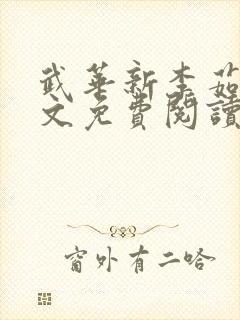 武華新李茹
文免費閱讀
窗外有二哈